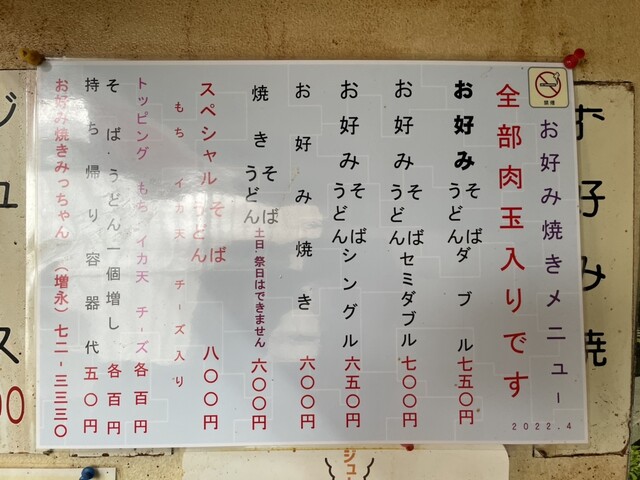 禁煙
お好み焼きメニュー
2022.4
全部肉玉入りです
お好みそばうどんダブル七五〇円
お好みそばうどんセミダブル七〇〇円
お好みそばうどんシングル六五〇円
お好み焼き六〇〇円
焼きそばうどん土日・祭日はできません六〇〇円
スペシャルそばうどん八〇〇円
もち イカ天 チーズ入り
トッピング もち イカ天 チーズ各百円
そば・うどん一個増し 各百円
持ち帰り容器代 五〇円
お好み焼きみっちゃん (増永)七二-三三三〇
お好み焼
ジュ
ス
00
ジュー